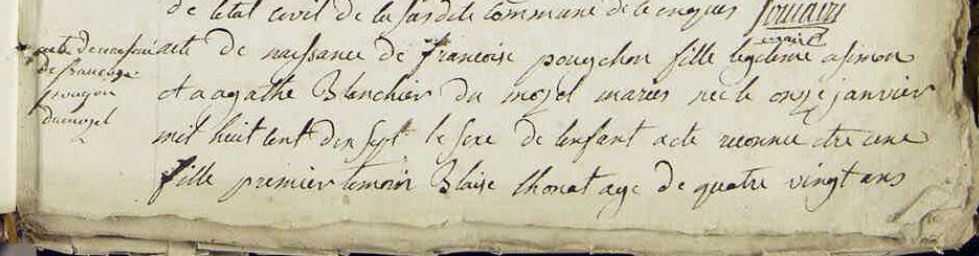 de letat civil de la susdite Commune de lenques
maire
acte de naissance
de francoise
pougon
du mozel
acte de naissance de francoise pouychon fille legitime a simon
et a agathe Blanchier du mozel maries nee le onze janvier
mil huit cent dix sept le sexe de lenfant a ete reconnu etre une
fille premier temoin Blaise thonat age de quatre vingt ans